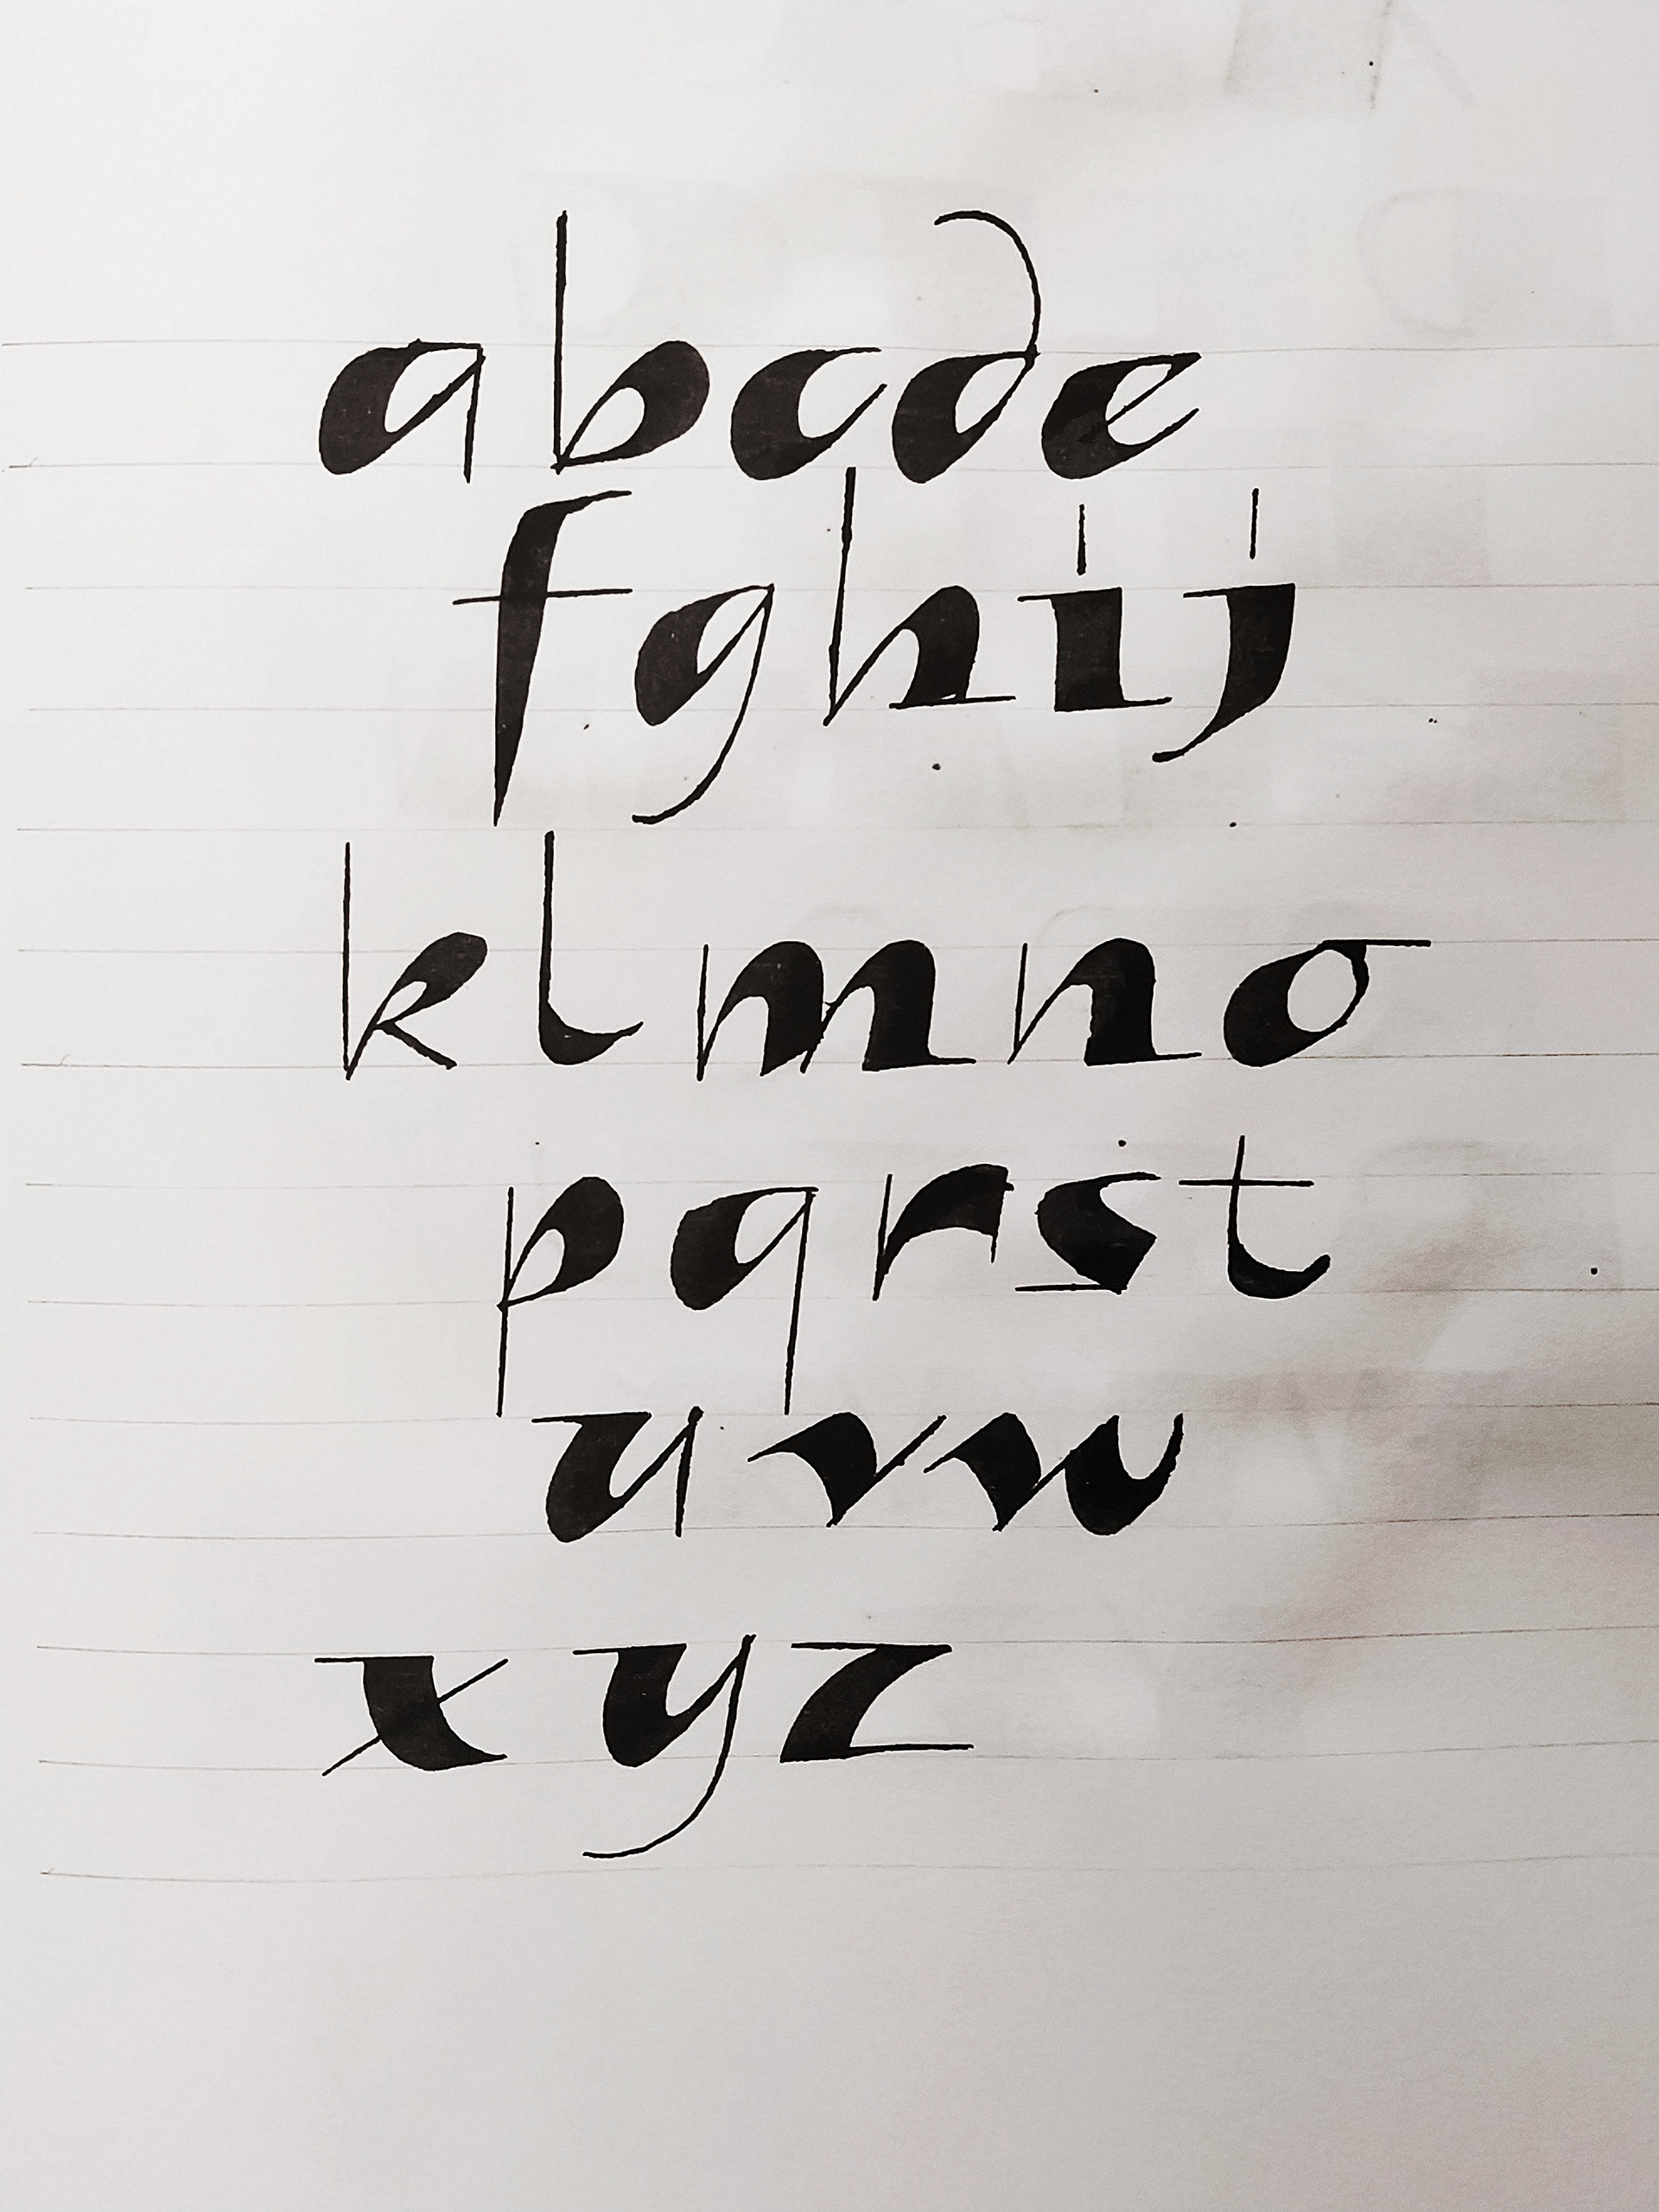 abcde
fghij
klmno
pqrst
uvw
xyz